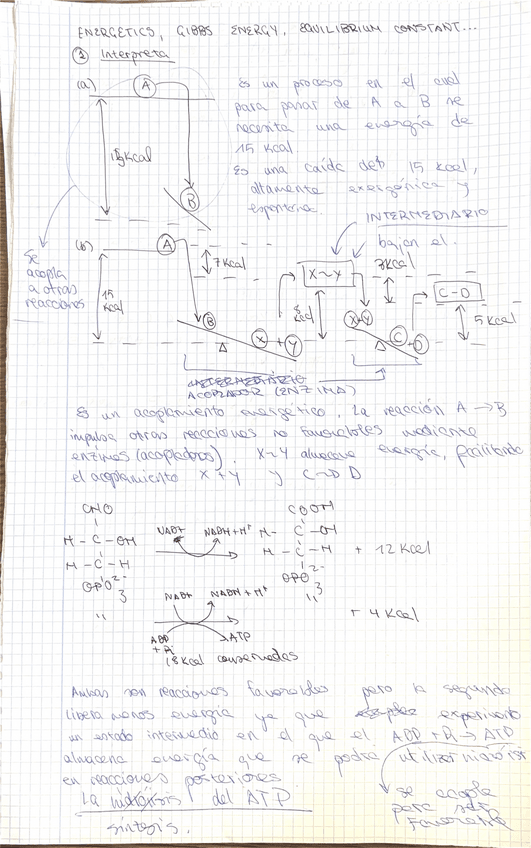 ENERGETICS, GIBBS ENERGY, EQUILIBRIUM CONSTANT...
① Interpreta
(a)
A
Es un proceso en el cual
para pasar de A a B se
necesita una energía de
15 kcal.
15 kcal
Es una caída de 15 kcal,
altamente exergónica y
B
INTERMEDIARIO
Se
acopla
a otras
reacciones
(b)
A
bajan el.
7 kcal
X~Y
3kcal
C-D
15
kcal
B
X + Y
kcal
X~Y
C + D
5 kcal
Δ
Δ
INTERMEDIÁRIO
ACOPLADOR (ENZIMA)
Es un acoplamiento energético. La reacción A → B
impulsa otras reacciones no favorables mediante
enzimas (acopladores). X~Y almacena energía, facilitando
el acoplamiento X + Y y C D
CHO
COOH
H - C - OH
NAD+
NADH+H+
H- C - OH
H - C - H
- C - H
+ 12 kcal
OPO2-
3
OPO2-
3
"
NAD+
NADH + H+
"
+ 4 kcal
ADP
+ Pi
ATP
8 kcal conservadas
Ambas son reacciones favorables pero la segunda
libera menos energía ya que experimenta
un estado intermedio en el que el ADP + Pi → ATP
almacena energía que se podrá utilizar
en reacciones posteriores.
La hidrólisis del ATP
síntesis.
se acopla
para ser
favorable